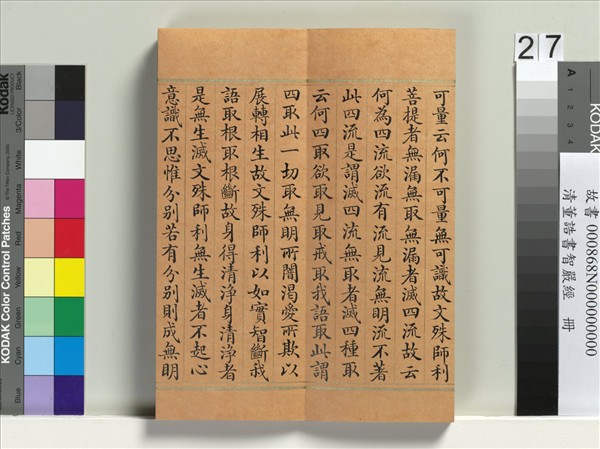 可量云何不可量無可識故文殊師利
菩提者無漏無取無漏者滅四流故云
何為四流欲流有流見流無明流不著
此四流是謂滅四流無取者滅四種取
云何四取欲取見取戒取我語取此謂
四取此一切取無明所闇渴愛所欺以
展轉相生故文殊師利以如實智斷我
語取根取根斷故身得清淨身清淨者
是無生滅文殊師利無生滅者不起心
意識不思惟分別若有分別則成無明
27
故書 000868N000000000
清董誥書智嚴經 冊
Kodak
KODAK Color Control Patches
Blue
Cyan
Green
Yellow
Red
Magenta
White
3/Color
Black
A
1
2
3
4
KODAK